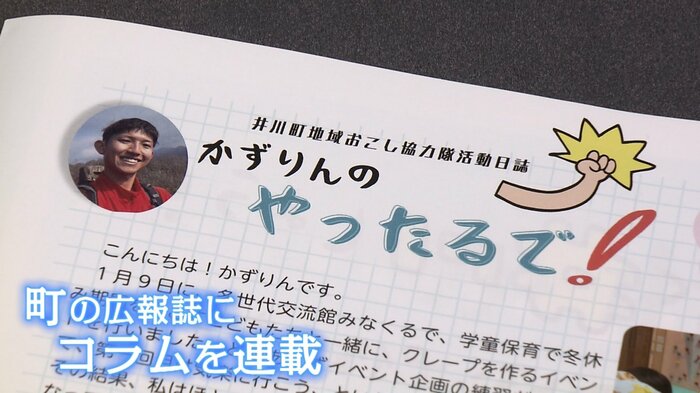 井川町地域おこし協力隊活動日誌
かずりんの
やったるで!
こんにちは！かずりんです。
1月9日に、多世代交流館みなくるで、学童保育で冬休
み期
どもたちと一緒に、クレープを作るイベン
を行いました
イベント企画の練習
第
回
に行こう、とい
その結果、私はほ
町の広報誌に
コラムを連載